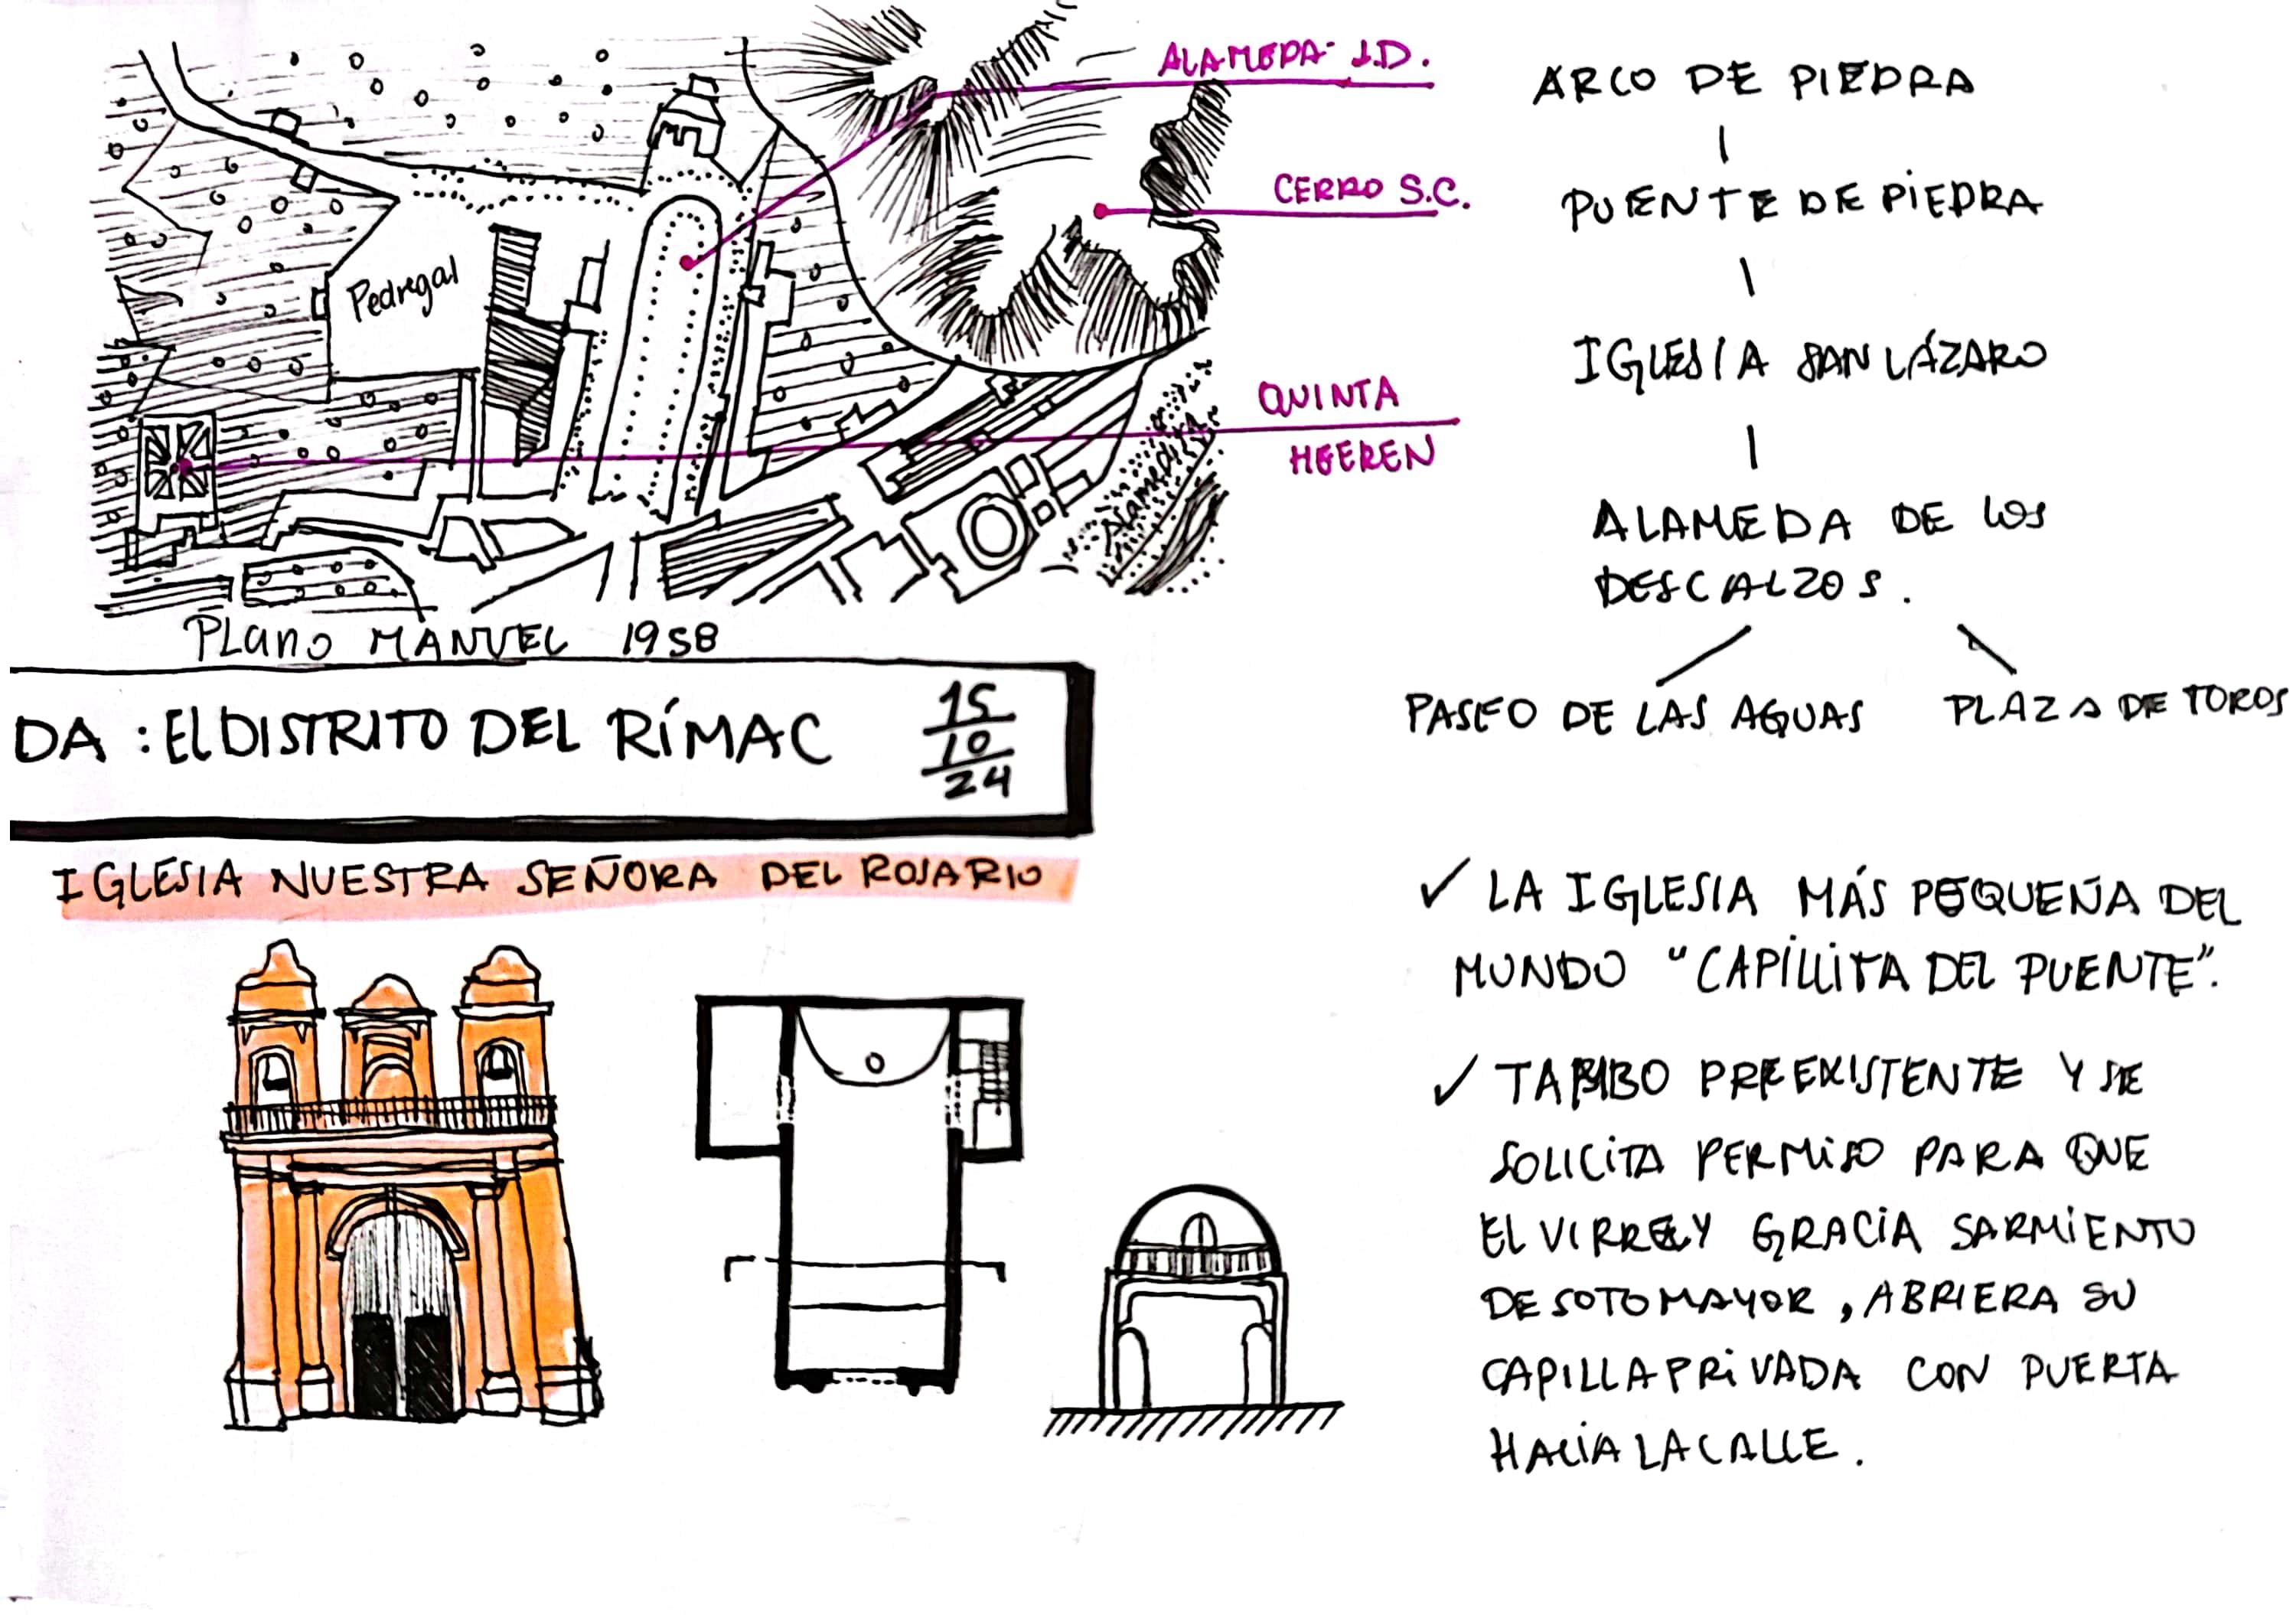 ALAMEDA J.D.
CERRO S.C.
QUINTA
HEEREN
Pedregal
Alameda
PLANO MANUEL 1958
ARCO DE PIEDRA
PUENTE DE PIEDRA
IGLESIA SAN LÁZARO
ALAMEDA DE LOS
DESCALZOS.
PASEO DE LAS AGUAS
PLAZA DE TOROS
DA : El DISTRITO DEL RÍMAC
15
10
24
IGLESIA NUESTRA SEÑORA DEL ROSARIO
✓ LA IGLESIA MÁS PEQUEÑA DEL
MUNDO "CAPILLITA DEL PUENTE".
✓ TAMBO PREEXISTENTE Y SE
SOLICITA PERMISO PARA QUE
EL VIRREY GRACIA SARMIENTO
DE SOTOMAYOR, ABRIERA SU
CAPILLA PRIVADA CON PUERTA
HACIA LA CALLE.